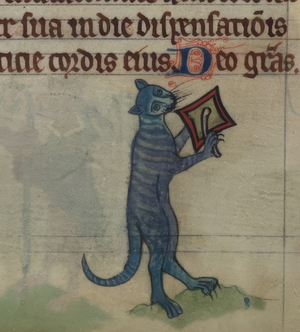 r sua in die dispensatiōis
ticie cordis eius. Deo grās.